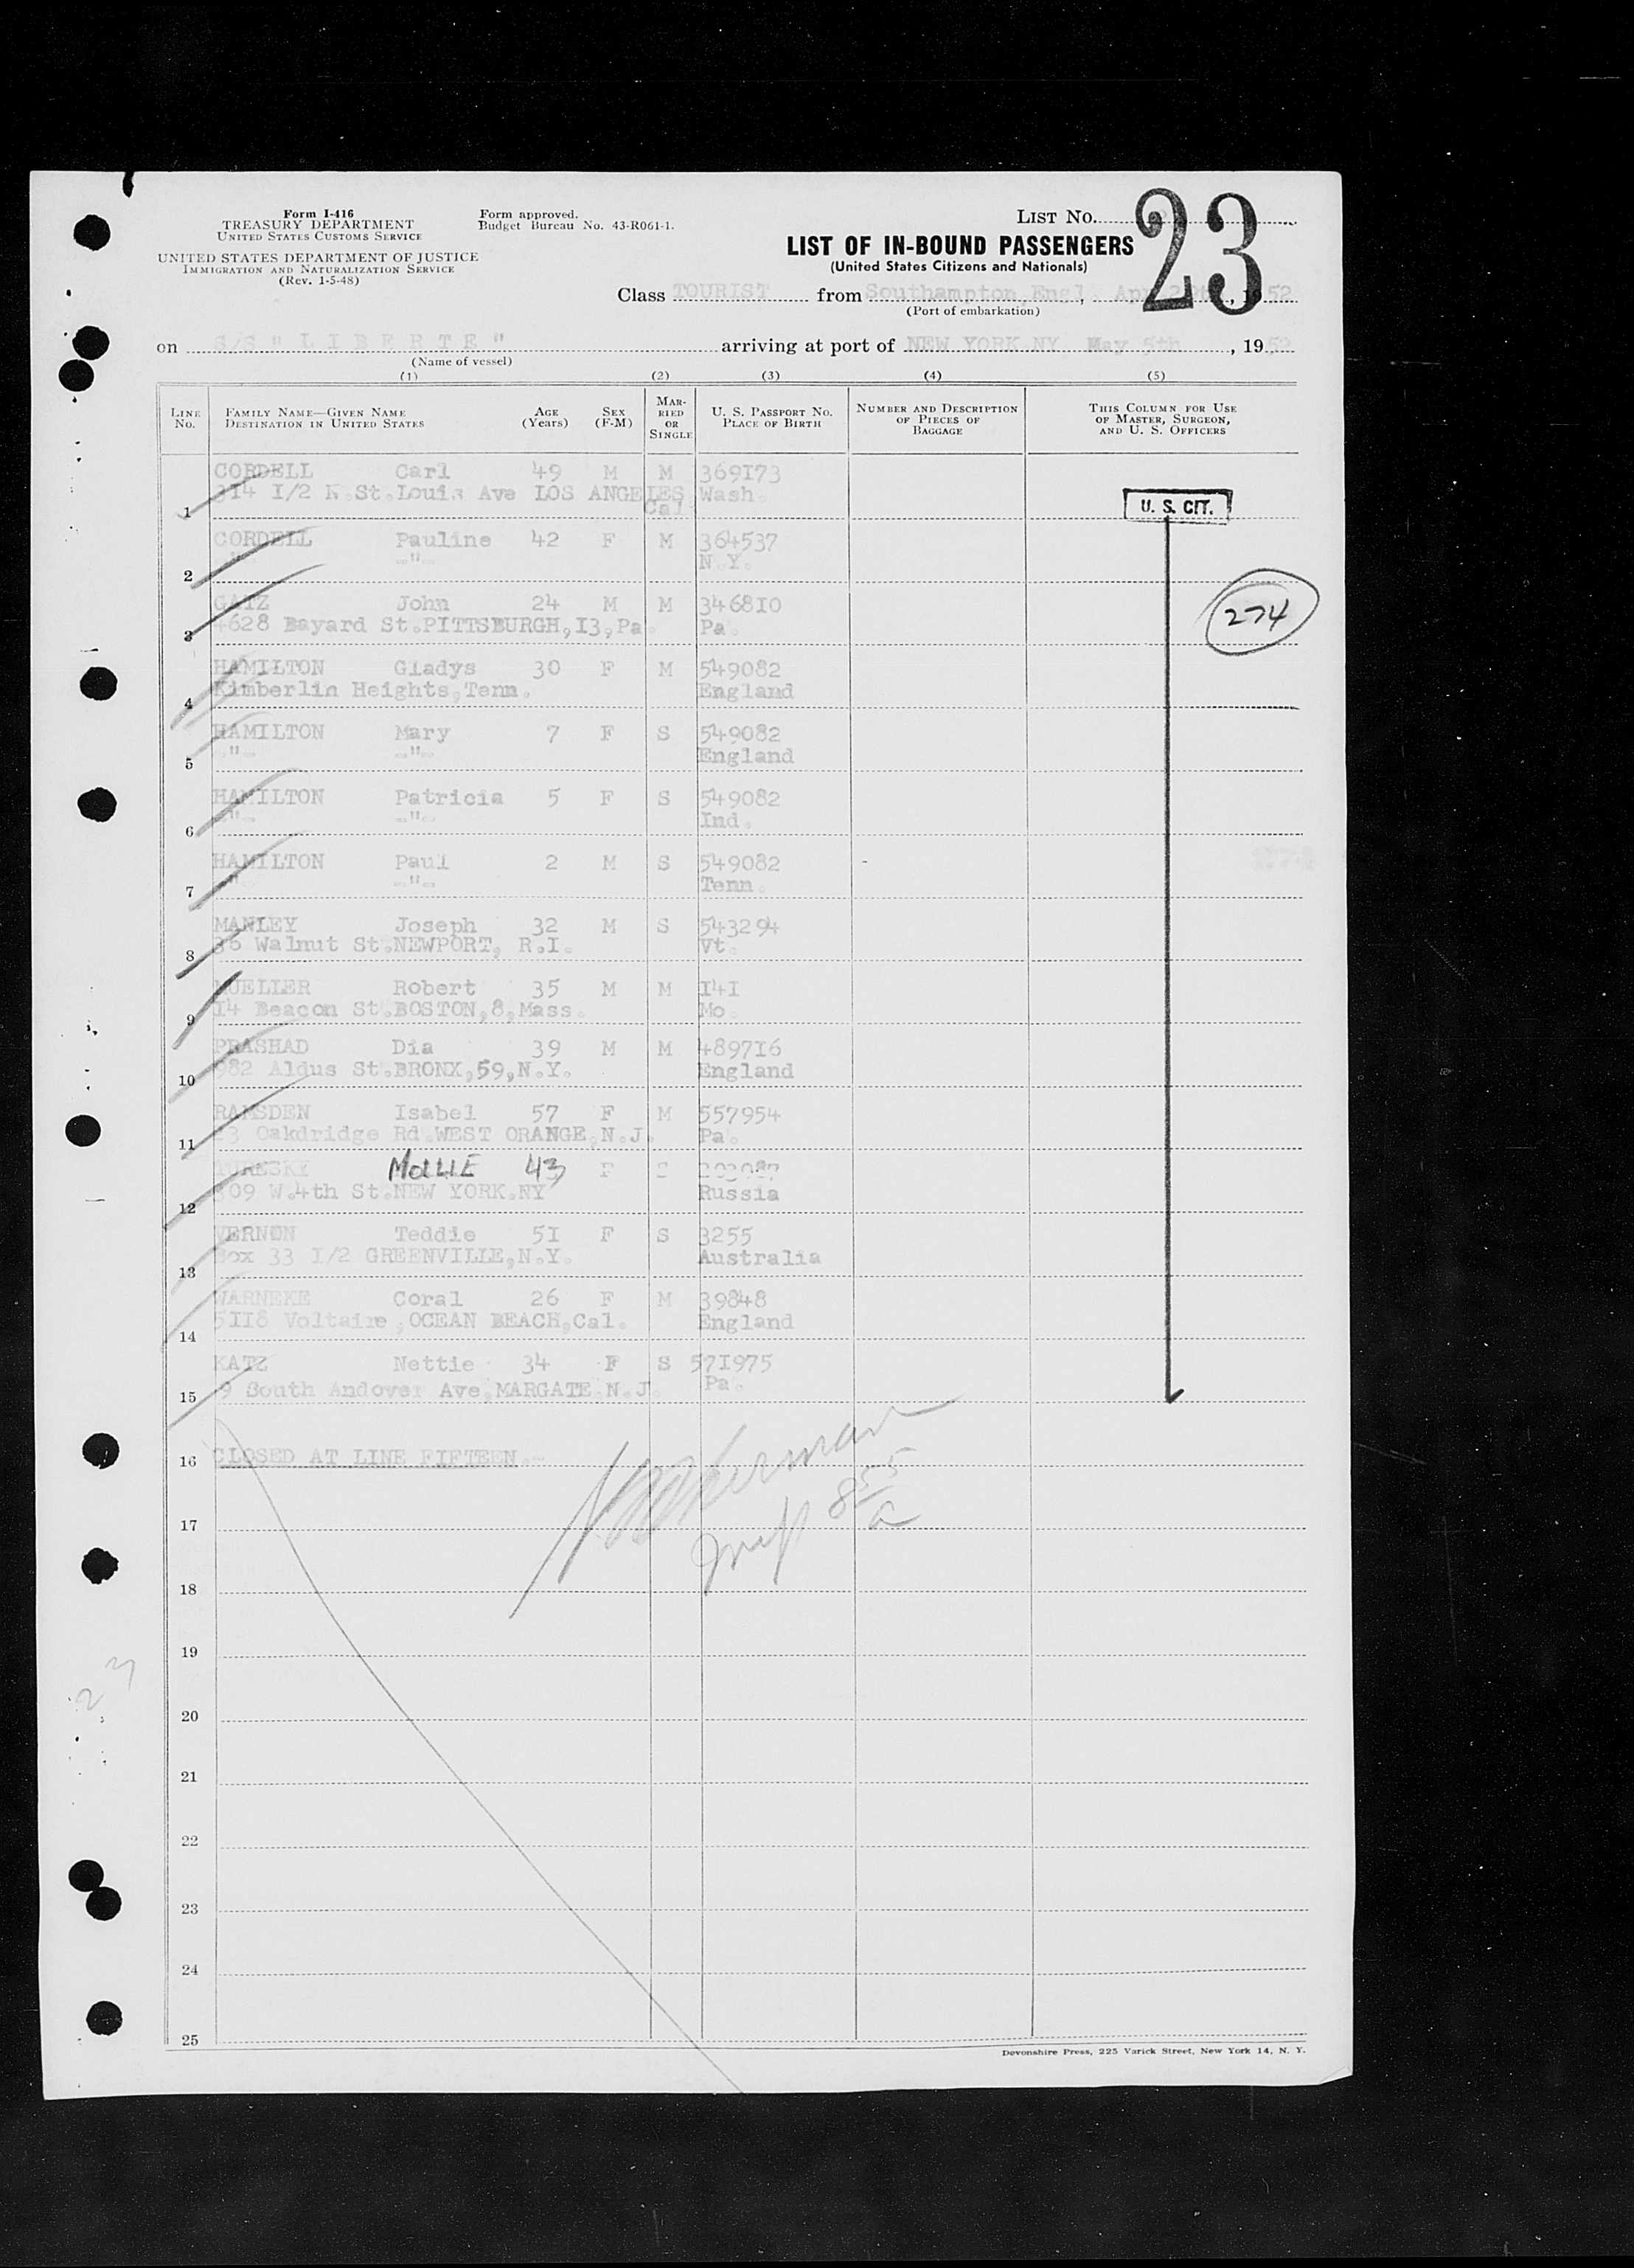 Form I-416
TREASURY DEPARTMENT
UNITED STATES CUSTOMS SERVICE
UNITED STATES DEPARTMENT OF JUSTICE
IMMIGRATION AND NATURALIZATION SERVICE
(Rev. 1-5-48)
Form approved.
Budget Bureau No. 43-R061-1.
LIST NO. 23
LIST OF IN-BOUND PASSENGERS
(United States Citizens and Nationals)
Class TOURIST from Southampton, Engl., 1952
(Port of embarkation)
on S/S " L I B E R T E " arriving at port of NEW YORK NY, May 5th, 1952
(Name of vessel)
(1) (2) (3) (4) (5)
LINE NO. FAMILY NAME—GIVEN NAME DESTINATION IN UNITED STATES AGE (Years) SEX (F-M) MARRIED OR SINGLE U. S. PASSPORT NO. PLACE OF BIRTH NUMBER AND DESCRIPTION OF PIECES OF BAGGAGE THIS COLUMN FOR USE OF MASTER, SURGEON, AND U. S. OFFICERS
CORDELL Carl 49 M M 369173
314 I/2 N.St.Louis Ave LOS ANGELES Cal Wash.
1 U. S. CIT.
CORDELL Pauline 42 F M 364537
-"- -"- N.Y.
2
GATZ John 24 M M 346810
274
4628 Bayard St.PITTSBURGH,I3,Pa. Pa.
3
HAMILTON Gladys 30 F M 549082
Kimberlin Heights,Tenn. England
4
HAMILTON Mary 7 F S 549082
-"- -"- England
5
HAMILTON Patricia 5 F S 549082
-"- -"- Ind.
6
HAMILTON Paul 2 M S 549082
-"- -"- Tenn.
7
MANLEY Joseph 32 M S 543294
36 Walnut St.NEWPORT, R.I. Vt.
8
MUELLER Robert 35 M M I4I
I4 Beacon St.BOSTON,8,Mass. Mo.
9
PRASHAD Dia 39 M M 489716
982 Aldus St.BRONX,59,N.Y. England
10
RAMSDEN Isabel 57 F M 557954
23 Oakdridge Rd.WEST ORANGE,N.J. Pa.
11
MOLLIE 43 F
W.4th St.NEW YORK.NY Russia
12
VERNON Teddie 51 F S 3255
Box 33 I/2 GREENVILLE,N.Y. Australia
13
WARNEKE Coral 26 F M 39848
5II8 Voltaire,OCEAN BEACH,Cal. England
14
KATZ Nettie 34 F S 571975
9 South Andover Ave,MARGATE.N.J. Pa.
15
16 CLOSED AT LINE FIFTEEN.-
855
17
18
19
23
20
21
22
23
24
25
Devonshire Press, 225 Varick Street, New York 14, N. Y.